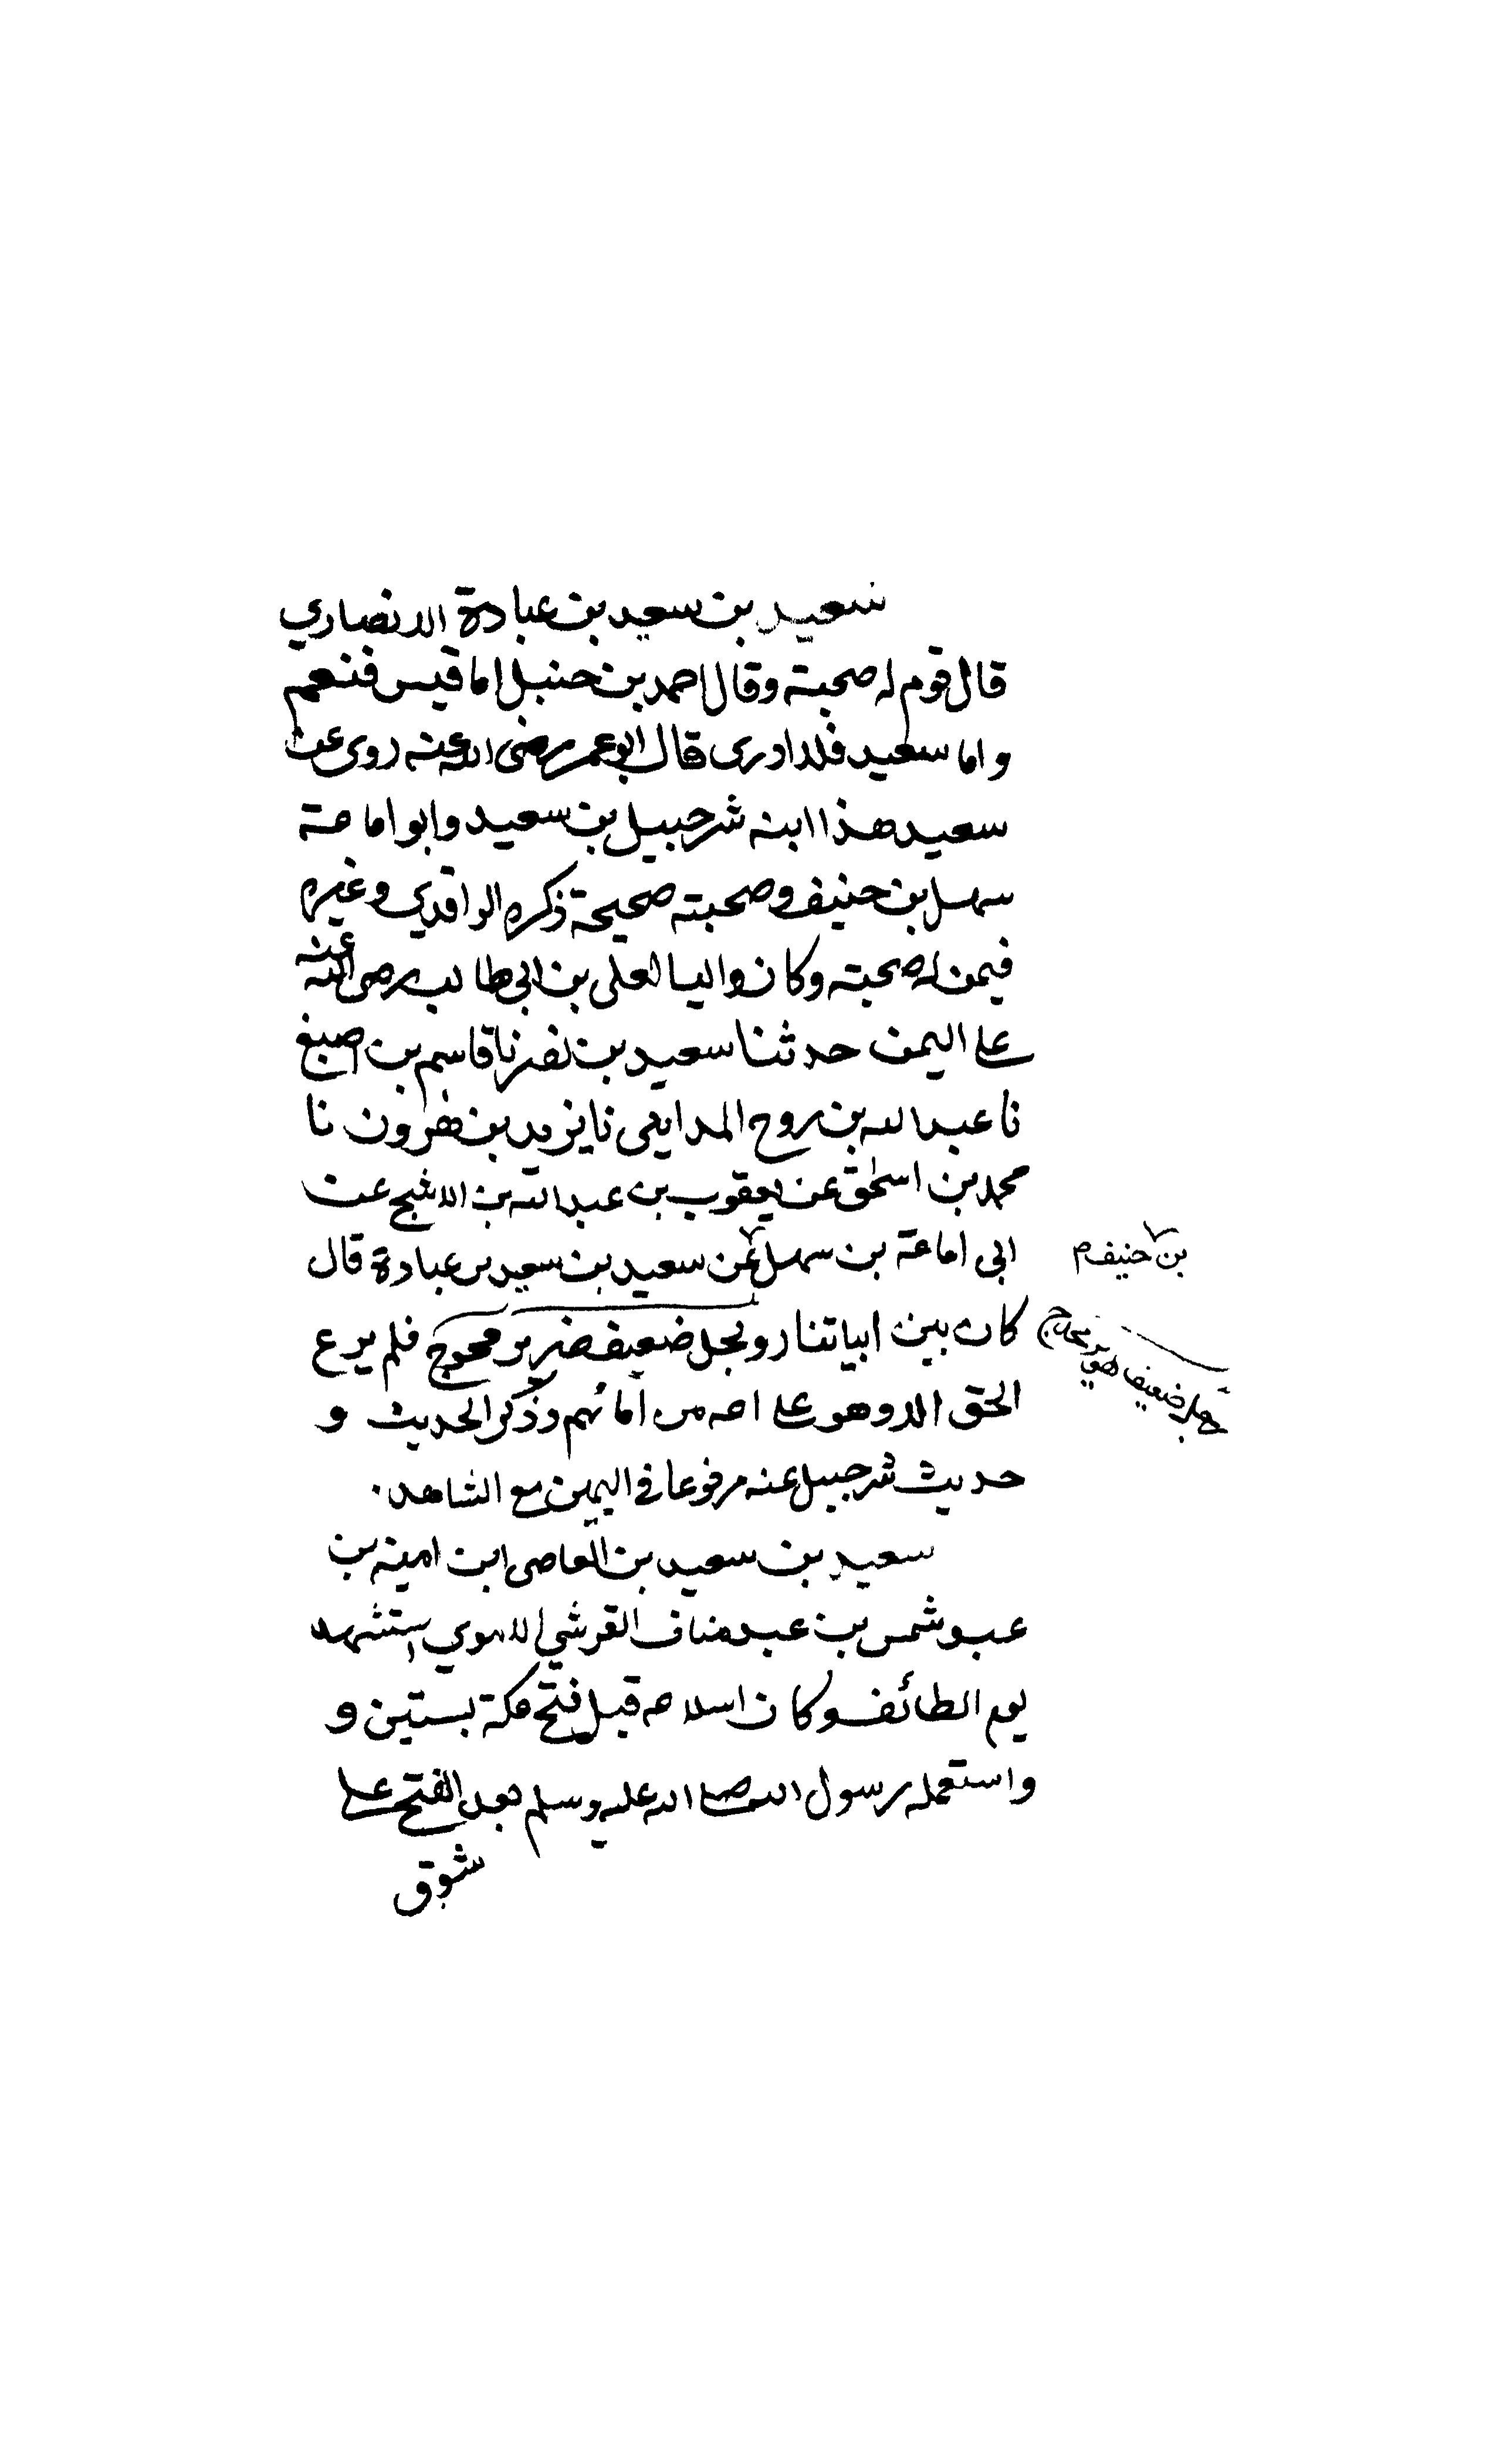 سعيد بن سعيد بن عبادة الانصاري
قال قوم له صحبته وقال احمد بن حنبل اما قيس فنعم
واما سعيد فلا ادرى قال ابو عمر رضى الله عنه روى عن
سعيد هذا ابنه شرحبيل بن سعيد وابو امامة
سهل بن حنيف وصحبته صحيحة ذكره الواقدي وغيره
فيمن له صحبته وكان واليا لعلى بن ابي طالب رضى الله عنه
على اليمن حدثنا سعيد بن نصر نا قاسم بن اصبغ
نا عبد الله بن روح المدايني نا يزيد بن هرون نا
محمد بن اسحق عن يعقوب بن عبد الله بن الاشج عن
ابي امامة بن سهل عن سعيد بن سعيد بن عبادة قال
بن حنيف م
كان بين ابياتنا رويجل ضعيف ضرير محوج فلم يرع
رجل ضعيف
الحق الا وهو على امه من امائهم وذكر الحديث و
حديث شرحبيل عنه مرفوعا في اليمين مع الشاهد.
سعيد بن سعيد بن العاصى ابن امية بن
عبد شمس بن عبد مناف القرشي الاموي استشهد
يوم الطائف وكان اسلامه قبل فتح مكة بستين و
واستعمله رسول الله صلى الله عليه وسلم بعد الفتح على
سوق